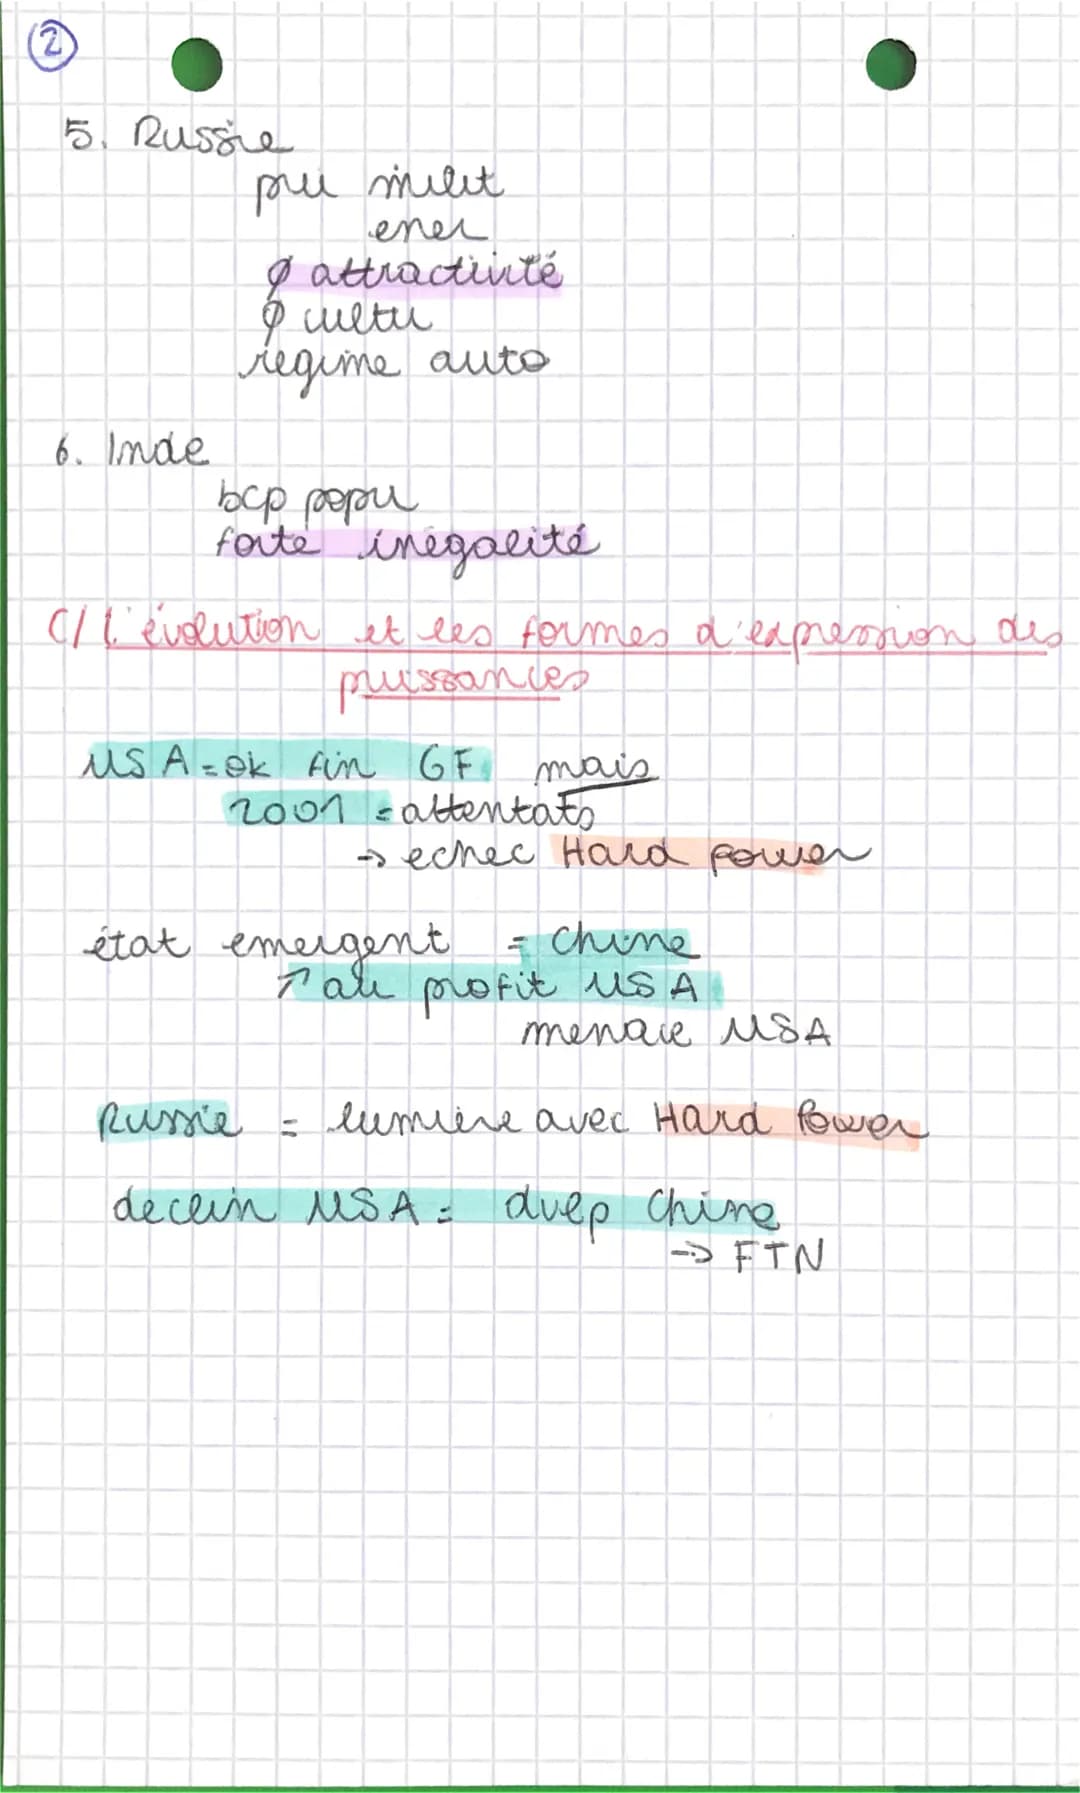 2
5. Russie
pui milit
ener
ø attractivité
ø cultu
regime auto
6. Inde
bcp popu
forte inégalité
C/ L'évolution et les formes d'expression des
puissances
USA = ok fin GF mais
2001 = attentats
→ echec Hard power
état emergent = Chine
↗ au profit USA
menace USA
Russie = lumière avec Hard Power
declin USA = dvlp Chine
→ FTN